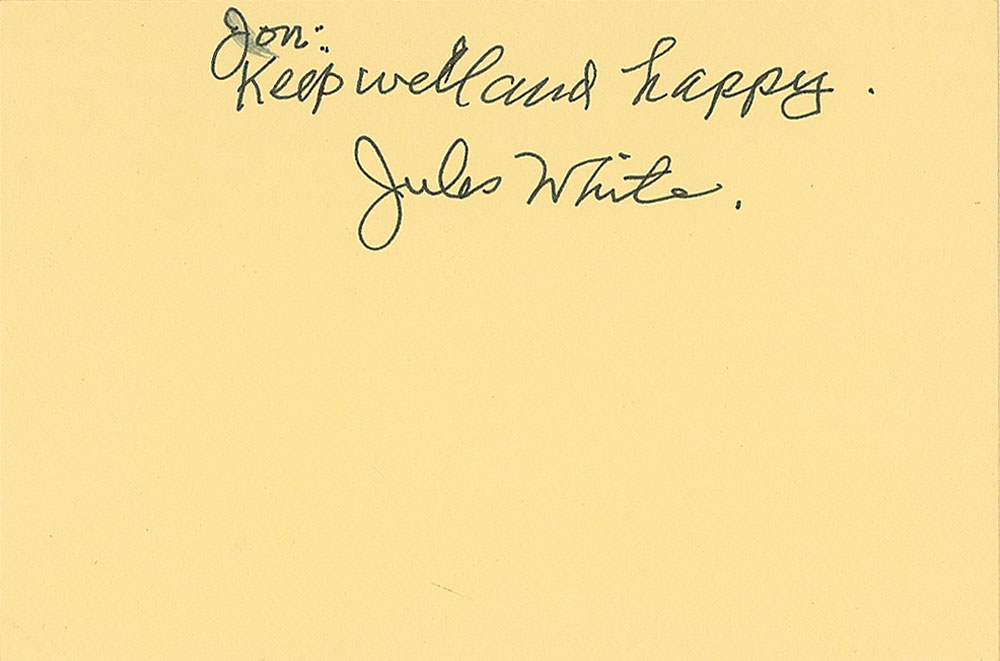 Jon:
Keep well and happy.
Jules White.